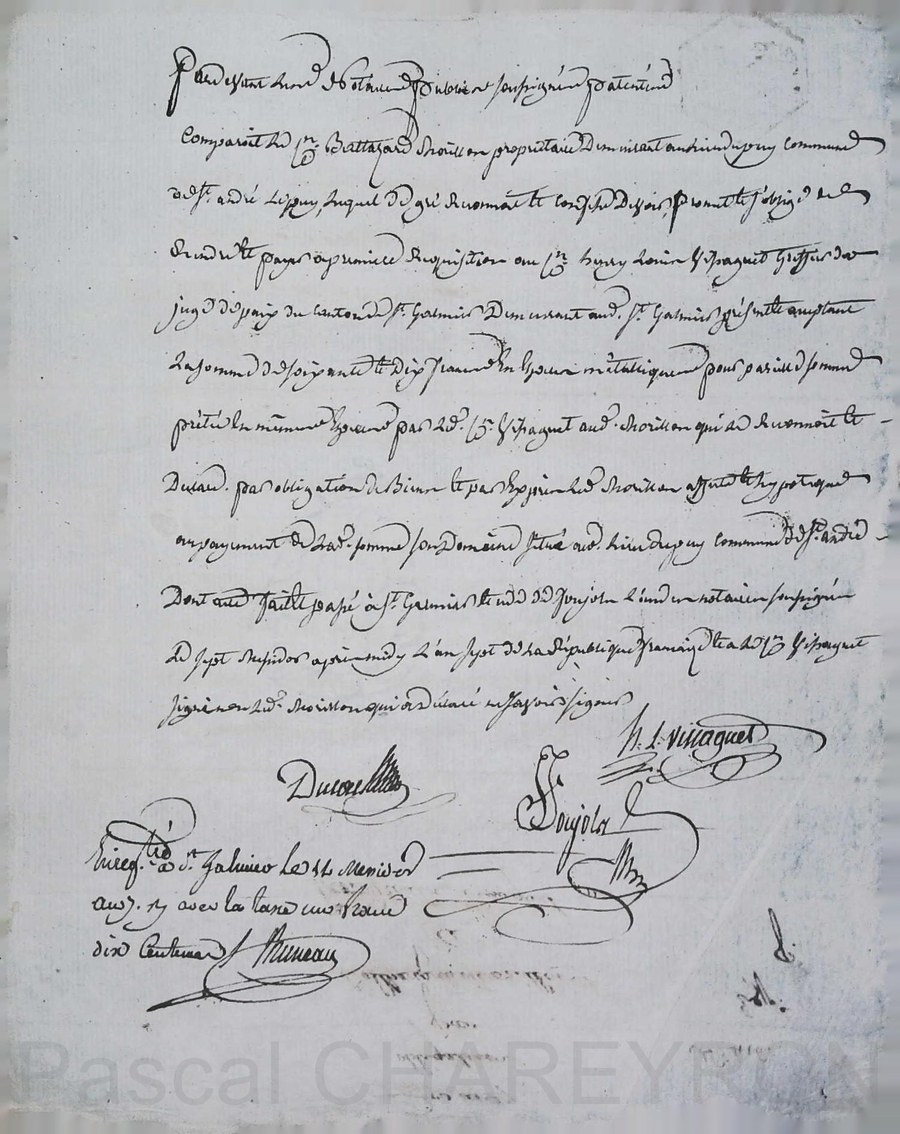 Pardevant les Notaires publics soussignés patentés
Comparoit le Cn. Balthazard Morillon propriétaire Demeurant au rieu du puy commune
de St. andré Le puy, lequel de gré reconnoit et confesse Devoir, promet et s'oblige de
rendre et payer à première Requisition au Cn. henry Louis Vissaguet Greffier du
juge de paix du canton de St. Galmier Demeurant aud. St. Galmier présent et acceptant
La somme de soixante et Dix francs En Espèces métalliques pour pareille somme
prêtée En mêmes Espèces par led. Cn. Vissaguet aud. Morillon qui le reconnoit et
Déclare. par obligation de Biens et par Exprès led. Morillon affecte et hypotèque
au payement de lad. somme son Domaine situé aud. rieu du puy commune de St. andré
Dont acte fait et passé à St. Galmier étude de Joujola L'un des notaires soussignés
Le sept Messidor après midy L'an sept de la République française et a le Cn. Vissaguet
signé non led. Morillon qui a Déclaré ne savoir signer
h. L. Vissaguet
Joujola
Enregtré à St. Galmier le 14 Messidor
an 7. Rç avec la taxe un franc
dix Centimes
Pascal CHAREYRON